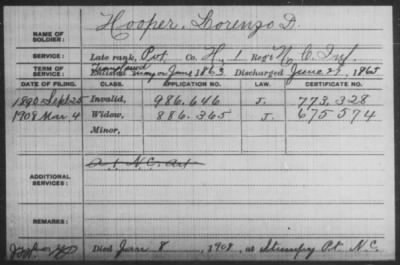 NAME OF SOLDIER: Hooper, Lorenzo D.
SERVICE: Late rank, Pvt, Co. H, 1 Reg't N. C. Inf.
TERM OF SERVICE: Enlisted June 1863 Discharged June 27, 1865
DATE OF FILING. CLASS. APPLICATION NO. LAW. CERTIFICATE NO.
1890 Sept 25 Invalid, 986.646 J. 773.328
1908 Mar. 4 Widow, 886.365 J. 675574
Minor,
ADDITIONAL SERVICES:
REMARKS:
Died Jan. 8, 1908, at Stumpy Pt. N.C.